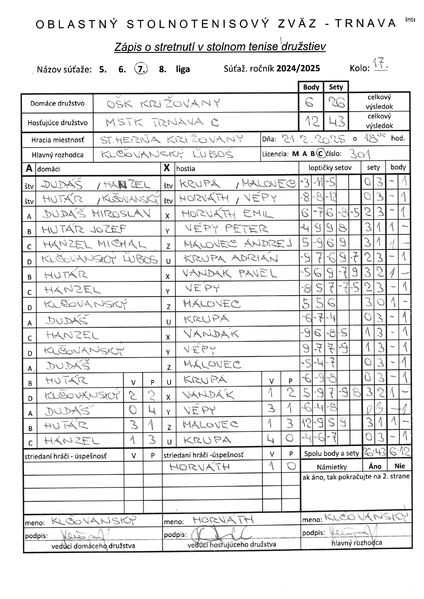 OBLASTNÝ STOLNOTENISOVÝ ZVÄZ - TRNAVA
Zápis o stretnutí v stolnom tenise družstiev
Názov súťaže: 5. 6. 7. 8. liga Súťaž. ročník 2024/2025 Kolo: 17.
Body Sety
Domáce družstvo OŠK KRIŽOVANY 6 26 celkový výsledok
Hosťujúce družstvo MSTK TRNAVA C 12 43 celkový výsledok
Hracia miestnosť ST HERŇA KRIŽOVANY Dňa: 21.2.2025 o 18 00 hod.
Hlavný rozhodca KLČOVANSKÝ ĽUBOŠ Licencia: M A B C číslo: 301
A domáci X hostia loptičky setov sety body
štv DUDÁŠ, HANZEL štv KRUPA, MALOVEC -3 -11 -5 0 3 - 1
štv HUTÁR, KLČOVANSKÝ štv HORVÁTH, VÉPY -8 -8 -12 0 3 - 1
A DUDÁŠ MIROSLAV X HORVÁTH EMIL -6 -7 6 -8 -5 2 3 - 1
B HUTÁR JOZEF Y VÉPY PETER -4 9 9 8 3 1 1 -
C HANZEL MICHAL Z MALOVEC ANDREJ -5 -9 6 9 3 1
D KLČOVANSKÝ ĽUBOŠ U KRUPA ADRIAN 2 3 - 1
B HUTÁR X VANDÁK PAVEL 3 2 1 -
C HANZEL Y VÉPY 2 3 - 1
D KLČOVANSKÝ Z MALOVEC 5 5 6 3 0 1 -
A DUDÁŠ U KRUPA -6 -7 -4 0 3 - 1
C HANZEL X VANDÁK -9 6 -8 -5 1 3 - 1
D KLČOVANSKÝ Y VÉPY 1 3 - 1
A DUDÁŠ Z MALOVEC -5 -4 -7 0 3 - 1
B HUTÁR V P U KRUPA V P -6 -9 -8 0 3 - 1
D KLČOVANSKÝ 2 2 X VANDÁK 1 2 3 2 1 -
A DUDÁŠ 0 4 Y VÉPY 3 1 -6 -4 -8 0 3 - 1
B HUTÁR 3 1 Z MALOVEC 1 3 12 -9 5 9 3 1 1 -
C HANZEL 1 3 U KRUPA 4 0 -4 -6 -7 0 3 - 1
striedaní hráči - úspešnosť V P striedaní hráči - úspešnosť V P Spolu body a sety 26:43 6:12
HORVÁTH 1 0 Námietky Áno Nie
ak áno, tak pokračujte na 2. strane
meno: KLČOVANSKÝ meno: HORVÁTH meno: KLČOVANSKÝ
podpis: podpis: podpis:
vedúci domáceho družstva vedúci hosťujúceho družstva hlavný rozhodca